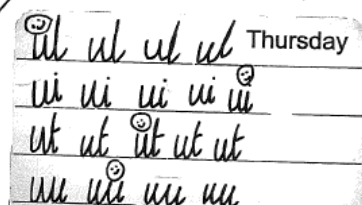 ul ul ul ul Thursday
ui ui ui ui ui
ut ut ut ut ut
uu uu uu uu